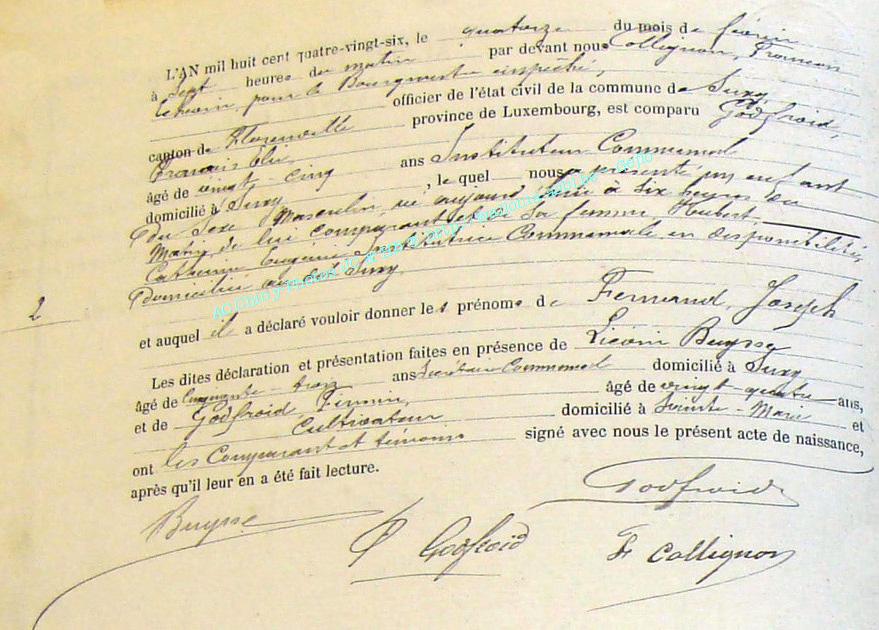 L'AN mil huit cent quatre-vingt-six, le quatorze du mois de février
à Sept heures du matin par devant nous Collignon, François
Echevin, pour le Bourgmestre empêché,
officier de l'état civil de la commune de Suxy,
canton de Florenville province de Luxembourg, est comparu Godfroid,
François Elie,
âgé de vingt-cinq ans Instituteur Communal
domicilié à Suxy, le quel nous a présenté un enfant
du Sexe Masculin, né aujourd'hui à Six heures du
Matin, de lui comparant et de Sa femme, Hubert
Catherine Eugénie Institutrice Communale en disponibilité,
Domiciliée au dit Suxy
2
et auquel il a déclaré vouloir donner les prénoms de Fernand, Joseph
Les dites déclaration et présentation faites en présence de Buysse
âgé de Cinquante-trois ans Secrétaire Communal domicilié à Suxy
et de Godfroid, Firmin, âgé de vingt-quatre ans,
Cultivateur domicilié à Sainte-Marie et
ont les Comparant et témoins signé avec nous le présent acte de naissance,
après qu'il leur en a été fait lecture.
Godfroid
Buysse
Godfroid
F Collignon